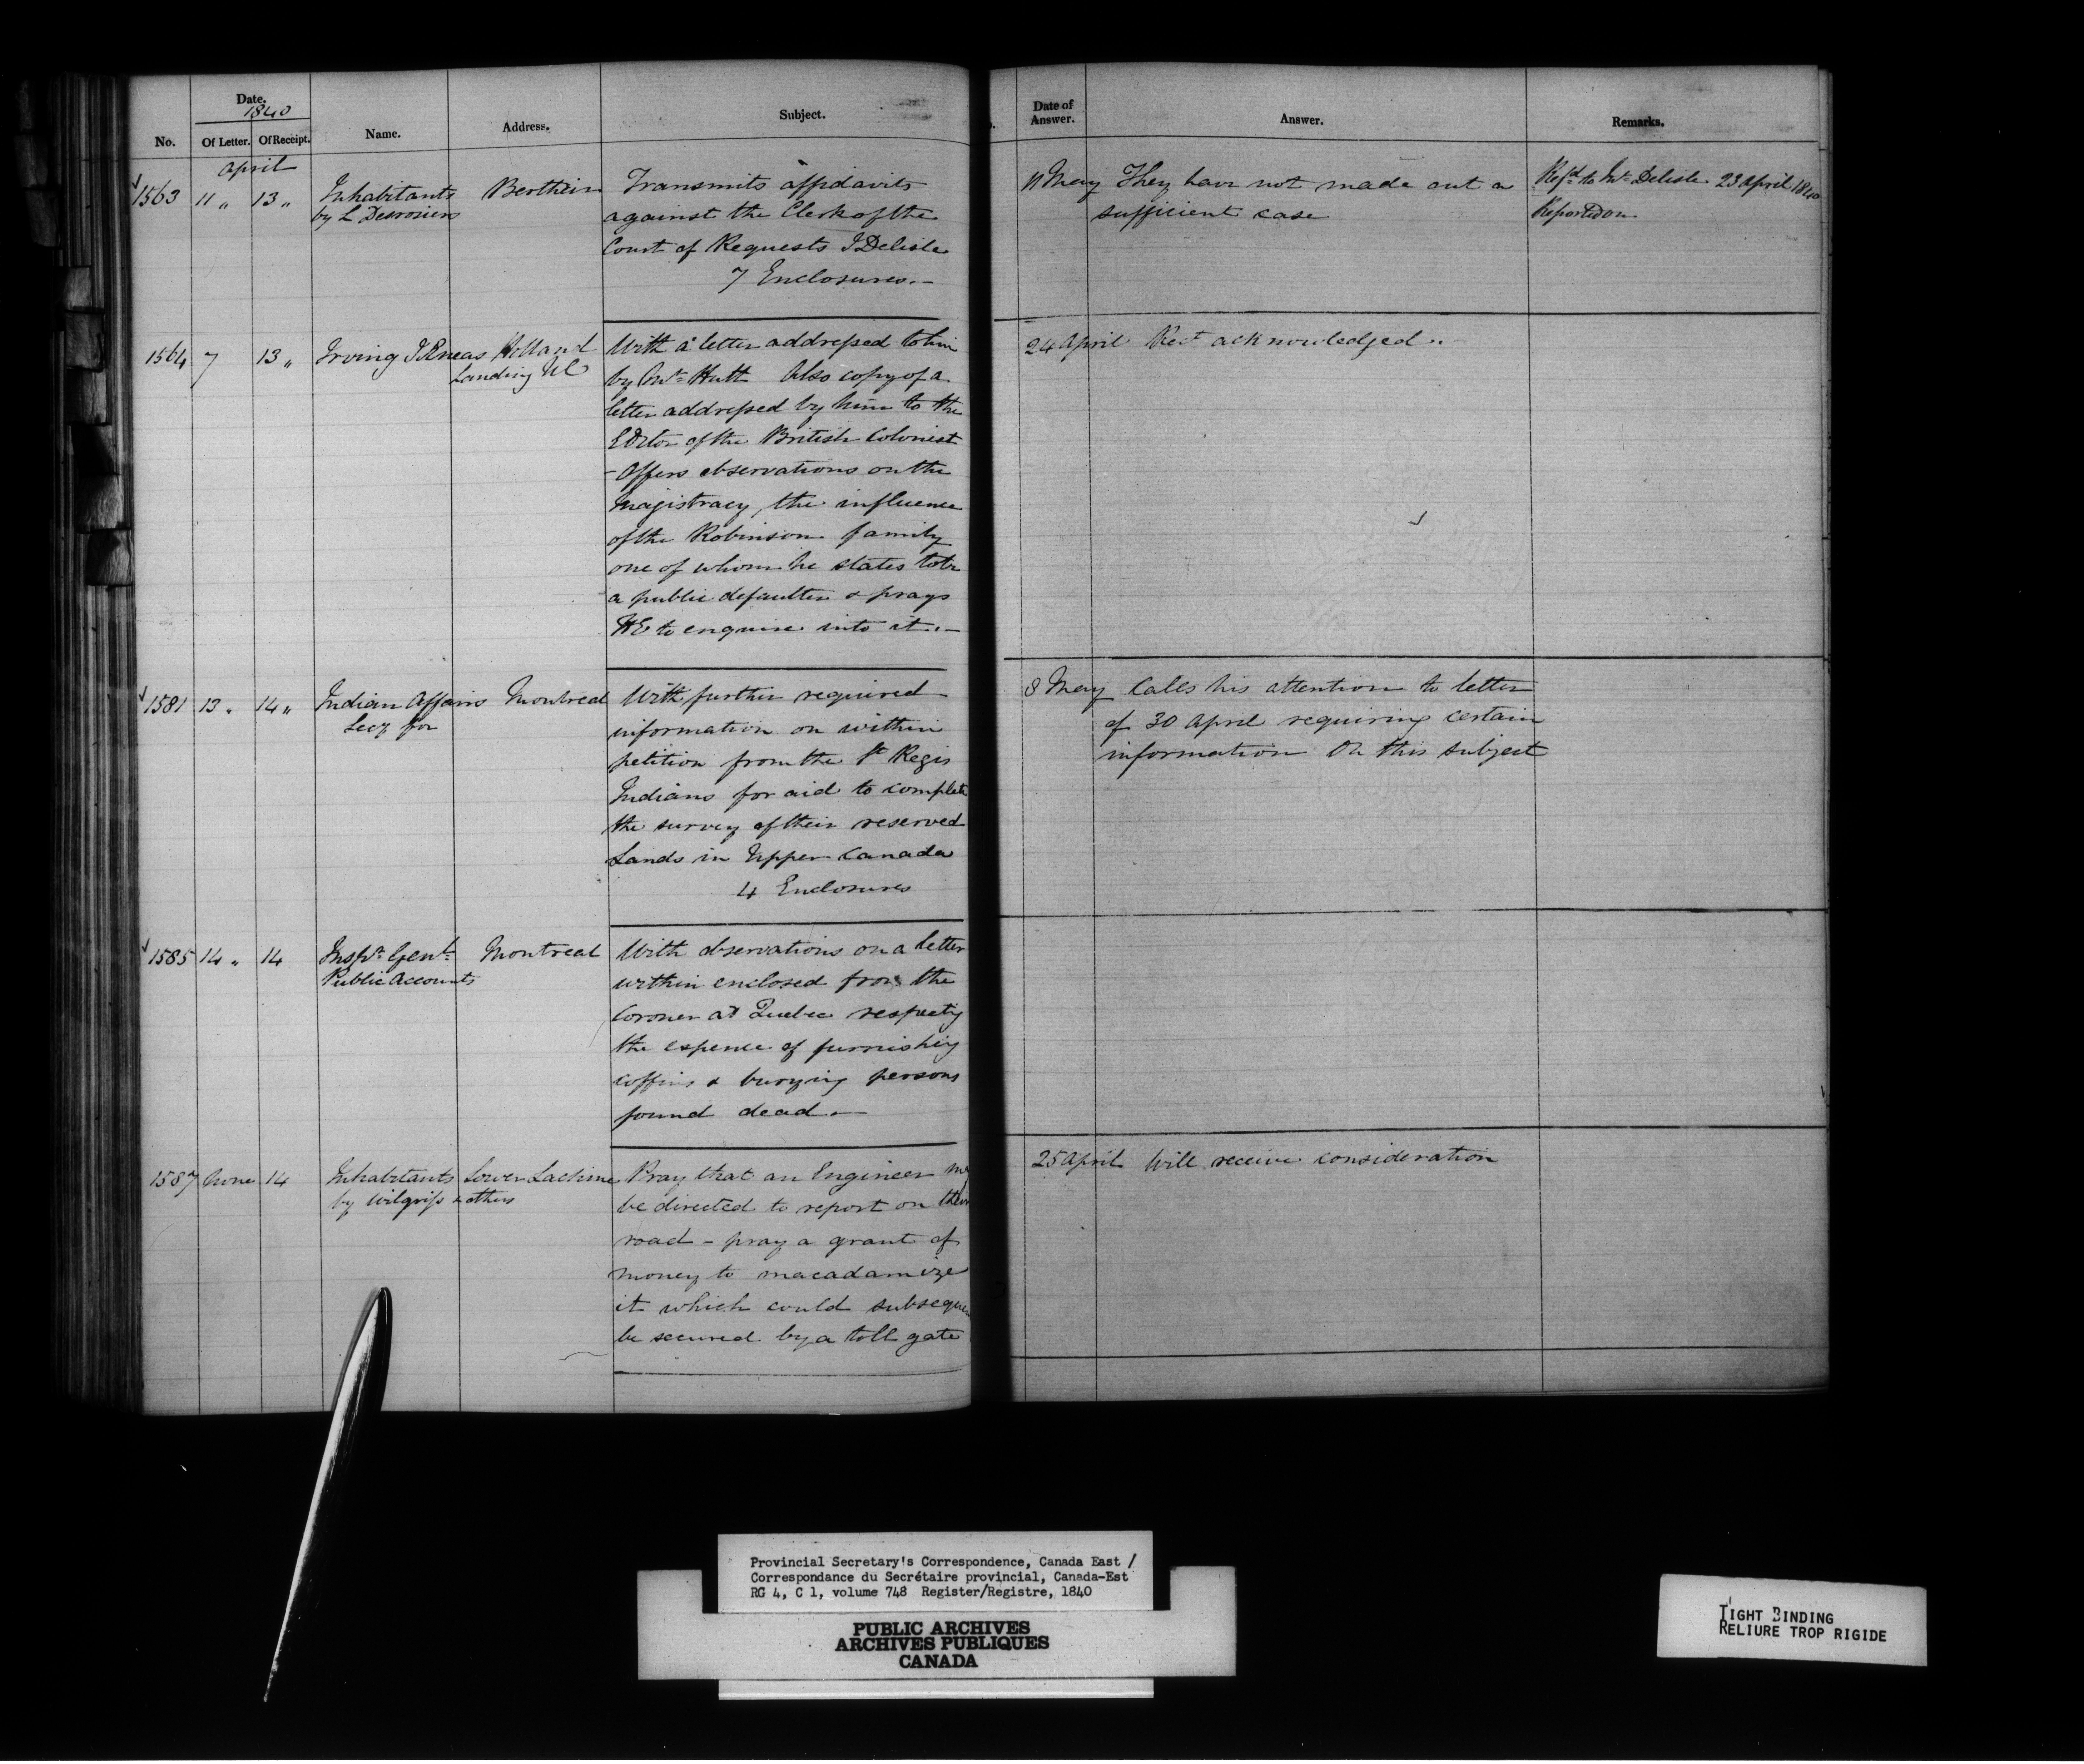 Date.
1840
No.
Of Letter.
Of Receipt.
Name.
Address.
Subject.
Date of
Answer.
Answer.
Remarks.
April
1563 11 " 13 " Inhabitants Berthier Transmits affidavits
by L Desrosiers against the Clerk of the
Court of Requests J Delisle
7 Enclosures.—
11 May They have not made out a
sufficient case
Refd to Mr Delisle 23 April 1840
Reported on
1564 7 13 " Irving J Æneas Holland With a letter addressed to him
Landing UC by Mr Hutt Also copy of a
letter addressed by him to the
Editor of the British Colonist
- Offers observations on the
Magistracy, the influence
of the Robinson family
one of whom he states to be
a public defaulter & prays
HE to enquire into it.—
24 April Rect acknowledged "
1581 13 " 14 " Indian Affairs Montreal With further required
Secy for information on within
petition from the St Regis
Indians for aid to complete
the survey of their reserved
Lands in Upper Canada
4 Enclosures
8 May Calls his attention to letter
of 30 April requiring certain
information on this subject
1585 14 " 14 Inspr Genl Montreal With observations on a letter
Public Accounts within enclosed from the
Coroner at Quebec respectg
the expence of furnishing
coffins & burying persons
found dead.—
1587 None 14 Inhabitants Lower Lachine Pray that an Engineer my
by Wilgress & others be directed to report on their
road - pray a grant of
money to macadamize
it which could subsequen
be secured by a toll gate
25 April Will receive consideration
Provincial Secretary's Correspondence, Canada East /
Correspondance du Secrétaire provincial, Canada-Est
RG 4, C 1, volume 748 Register/Registre, 1840
PUBLIC ARCHIVES
ARCHIVES PUBLIQUES
CANADA
TIGHT BINDING
RELIURE TROP RIGIDE